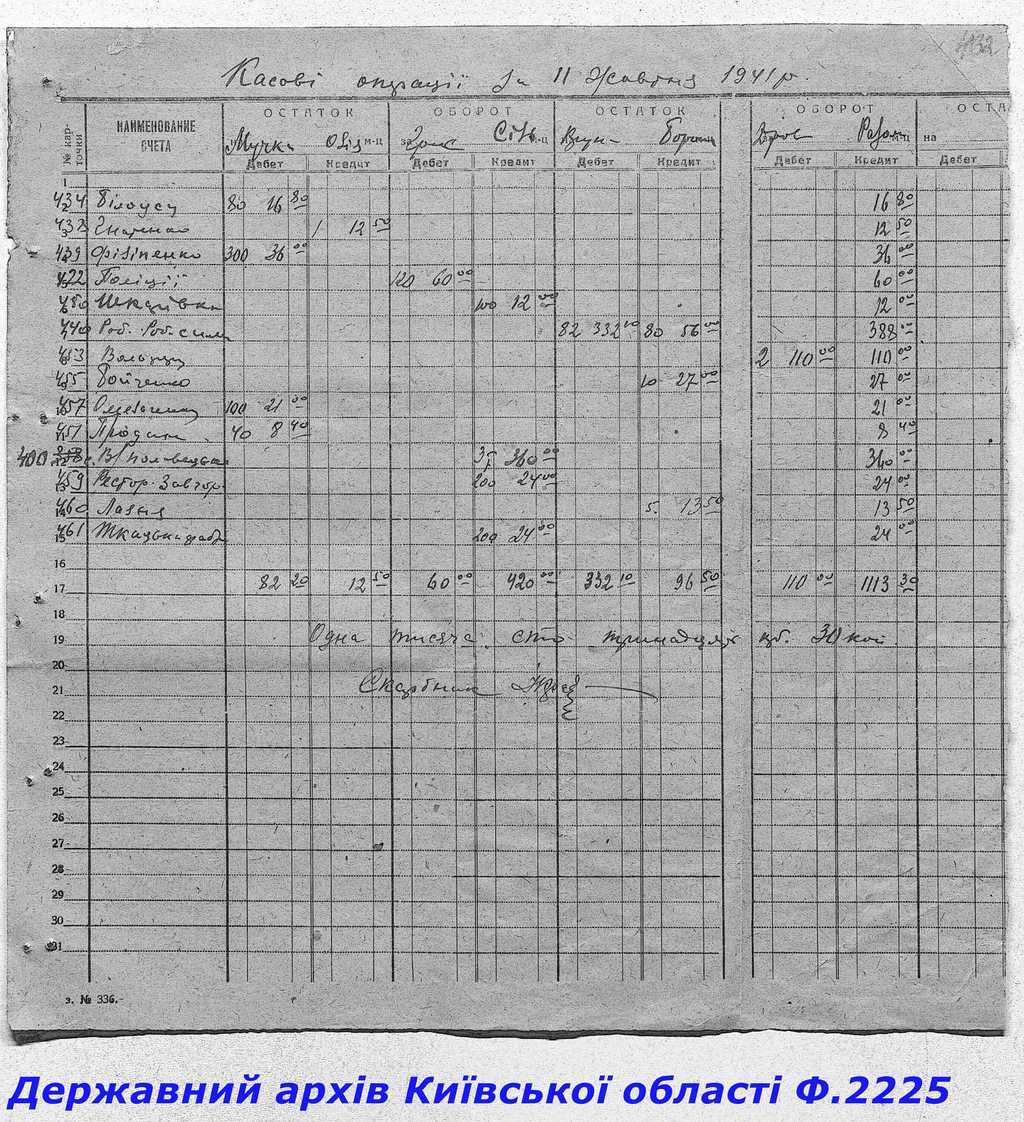 4132
Касові операції за 11 Жовтня 1941 р.
№ кар-точки НАИМЕНОВАНИЕ СЧЕТА ОСТАТОК ОБОРОТ ОСТАТОК ОБОРОТ ОСТА
Мучка м-ц за Сіль м-ц Дров Разом м-ц на
Дебет Кредит Дебет Кредит Дебет Кредит Дебет Кредит Дебет
1
434 Білоусу 80 16 80 16 80
1 12 50 12 50
439 Філіпенко 300 36 00 36 00
422 Поліції 120 60 00 60 00
450 100 12 00 12 00
440 Роб. Роб. 82 332 10 80 56 00 388
453 2 110 00 110 00
455 Бойченко 10 27 00 27 00
457 100 21 00 21 00
451 40 8 40 8 40
400 В/Половецьк 360 00 360 00
459 Рестор. 200 24 00 24 00
460 Лазня 5 13 50 13 50
461 Ткацька 200 24 00 24 00
16
17 82 20 12 50 60 00 420 00 332 10 96 50 110 00 1113 30
18
19 Одна тисяча сто тринадцять крб. 30 коп
20
21 Скарбник
22
23
24
25
26
27
28
29
30
31
з. № 336.
Державний архів Київської області Ф.2225